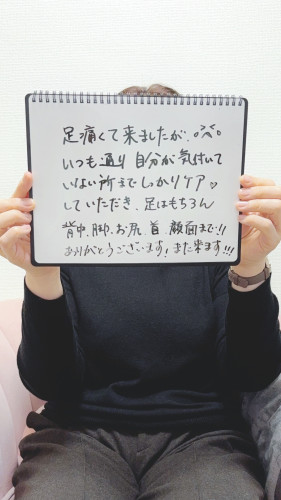 足痛くて来ましたが、
いつも通り自分が気付いて
いない所までしっかりケア♡
していただき、足はもちろん
背中、脚、お尻、首、顔面まで!!
ありがとうございます！また来ます!!!